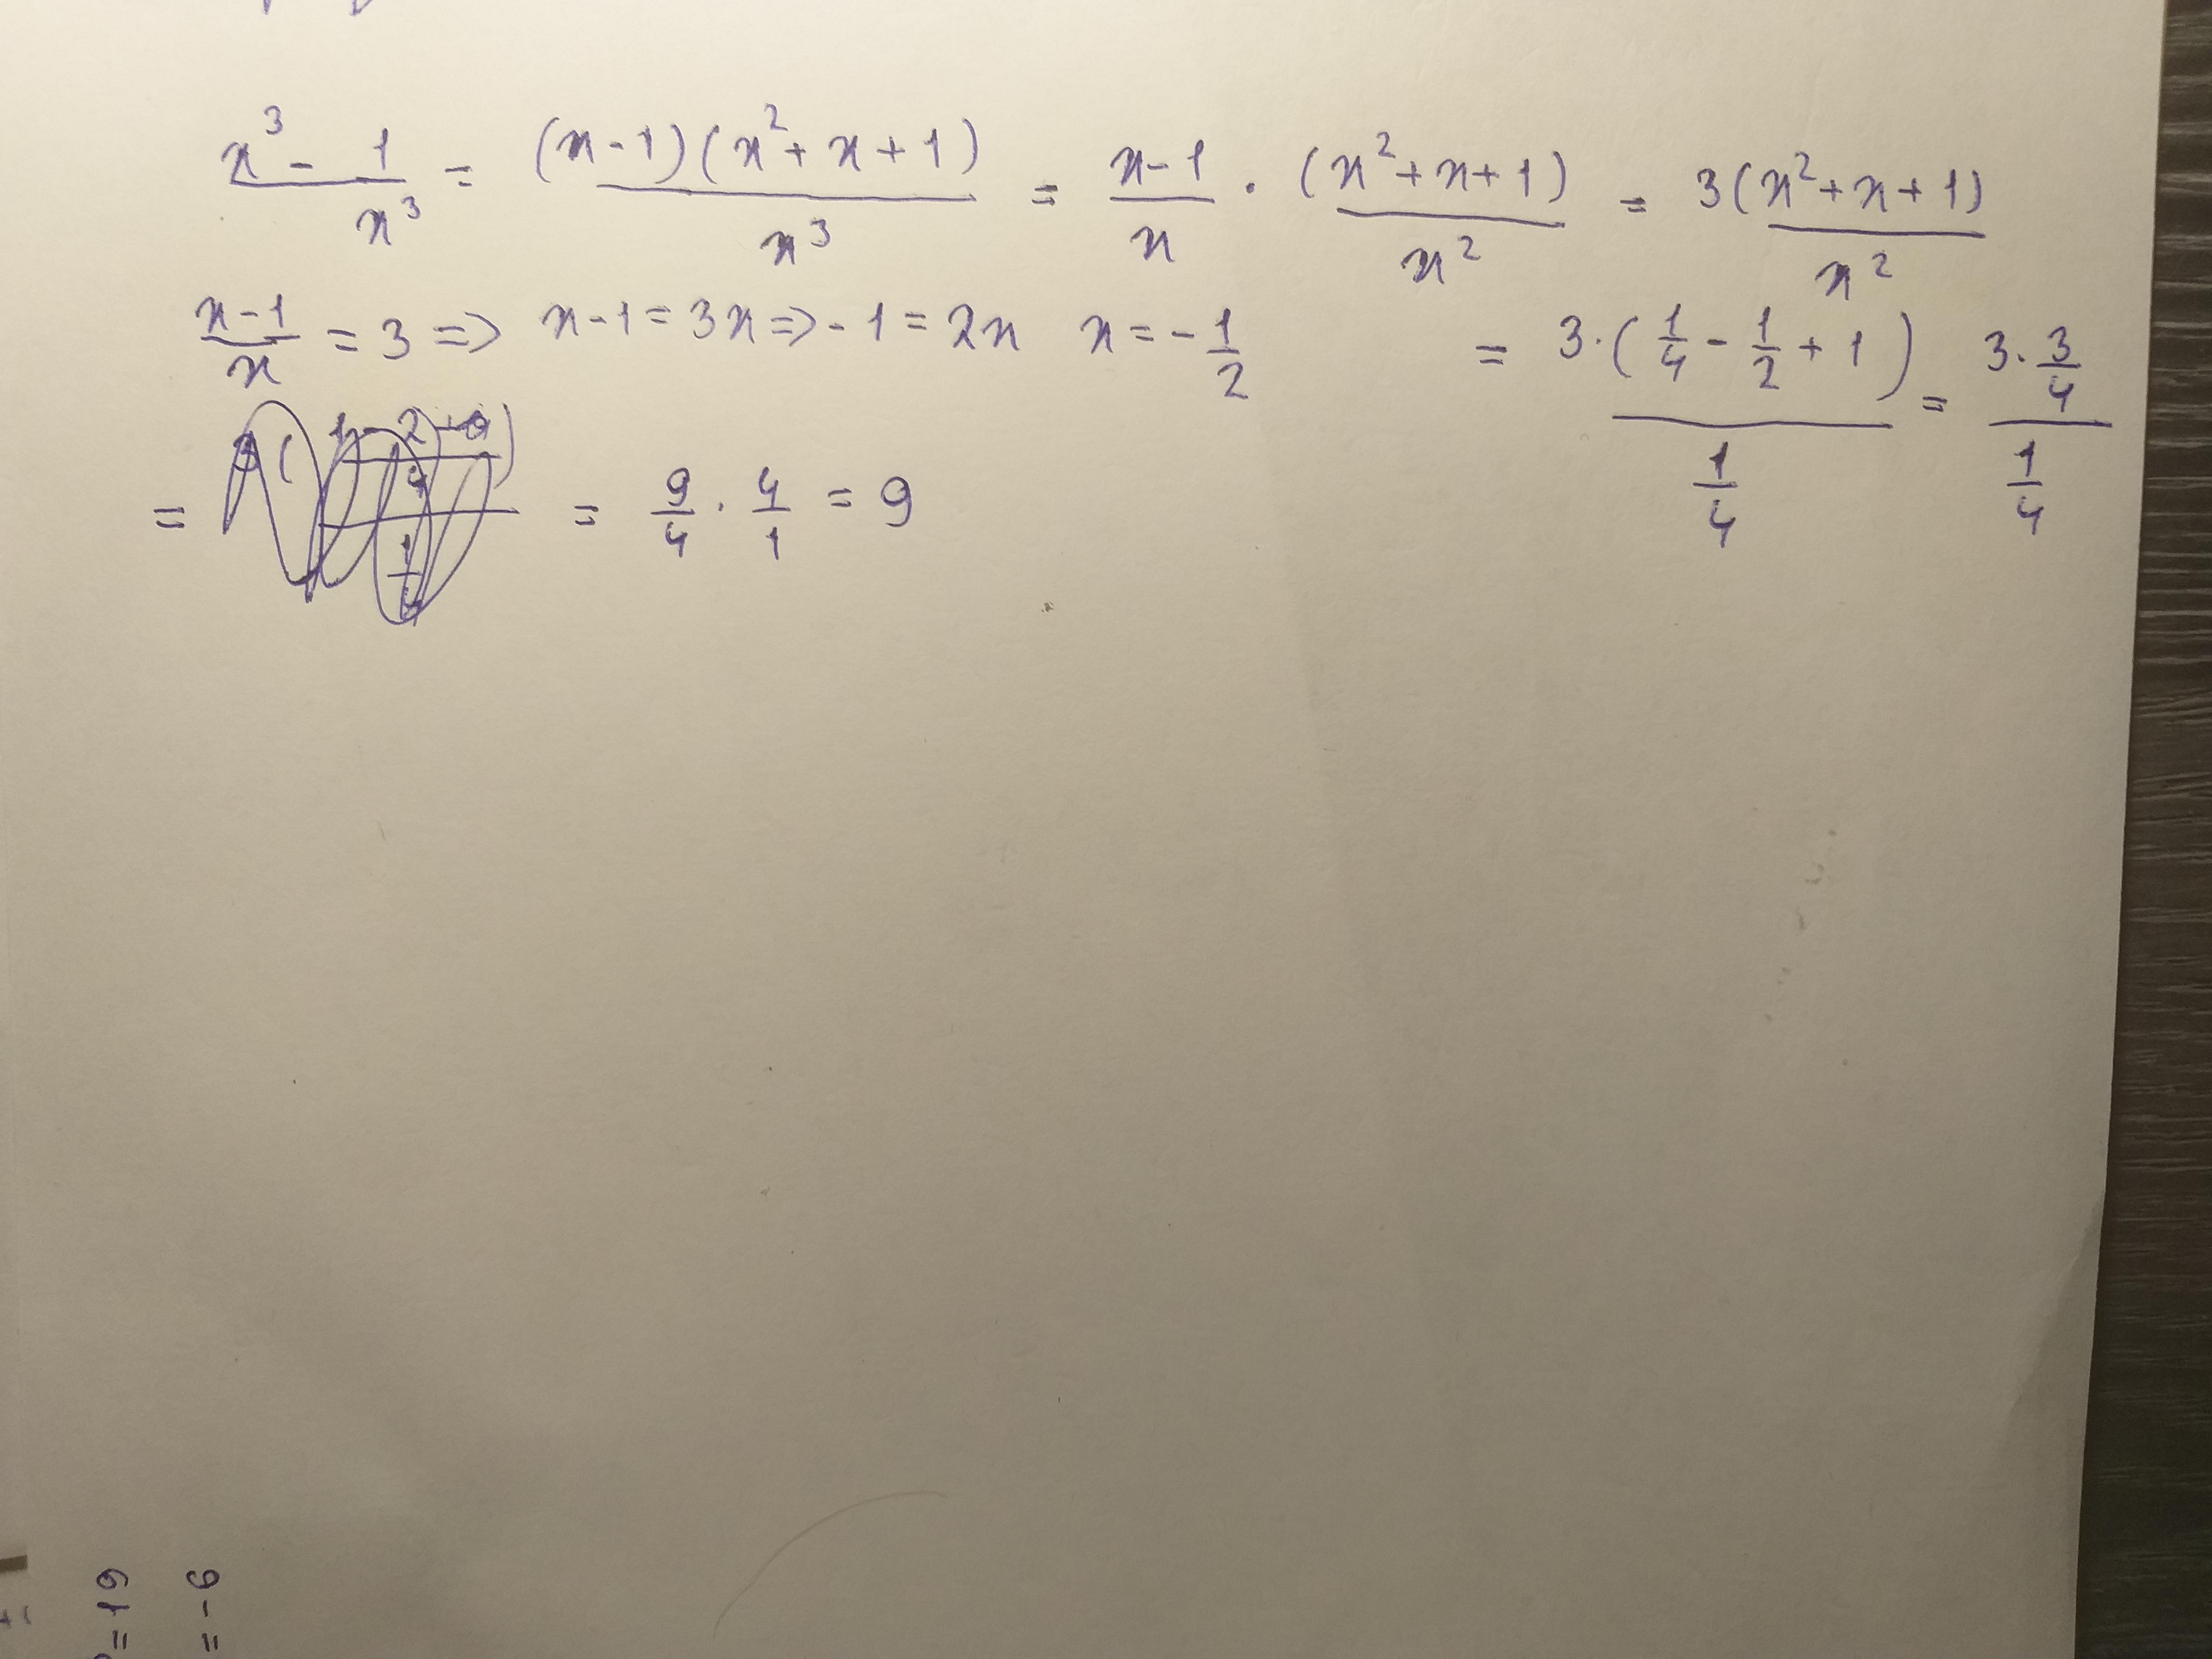 x³ - 1/x³ = (x-1)(x²+x+1)/x³ = x-1/x · (x²+x+1)/x² = 3(x²+x+1)/x²
x-1/x = 3 => x-1 = 3x => -1 = 2x x = -1/2
= 3·(1/4 - 1/2 + 1)/(1/4) = 3·3/4/(1/4)
= = 9/4 · 4/1 = 9
= 19
= -6